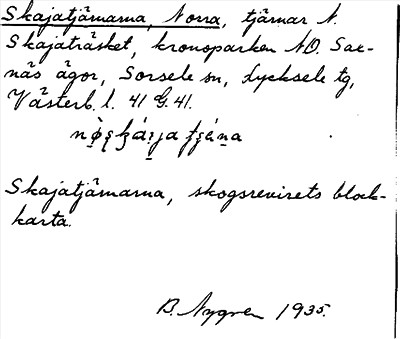 Skajatjärnarna, Norra, tjärnar N.
Skajaträsket, kronoparken NO. Sax-
näs ägor, Sorsele sn, Lycksele tg,
Västerb. l. 41 G. 41.
Skajatjärnarna, skogsrevirets block-
karta.
B. Nygren 1935.